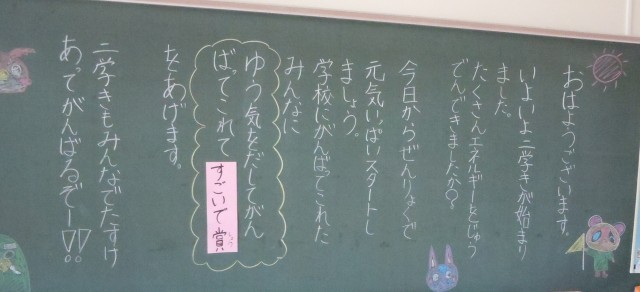 おはようございます。
いよいよ二学きが始まり
ました。
たくさんエネルギーをじゅう
でんできましたか？
今日からぜんりょくで
元気いっぱいスタートし
ましょう。
学校にがんばってこれた
みんなに
ゆう気をだしてがん
ばってこれて
すごいて賞
しょう
をあげます。
二学きもみんなでたすけ
あってがんばるぞー!!